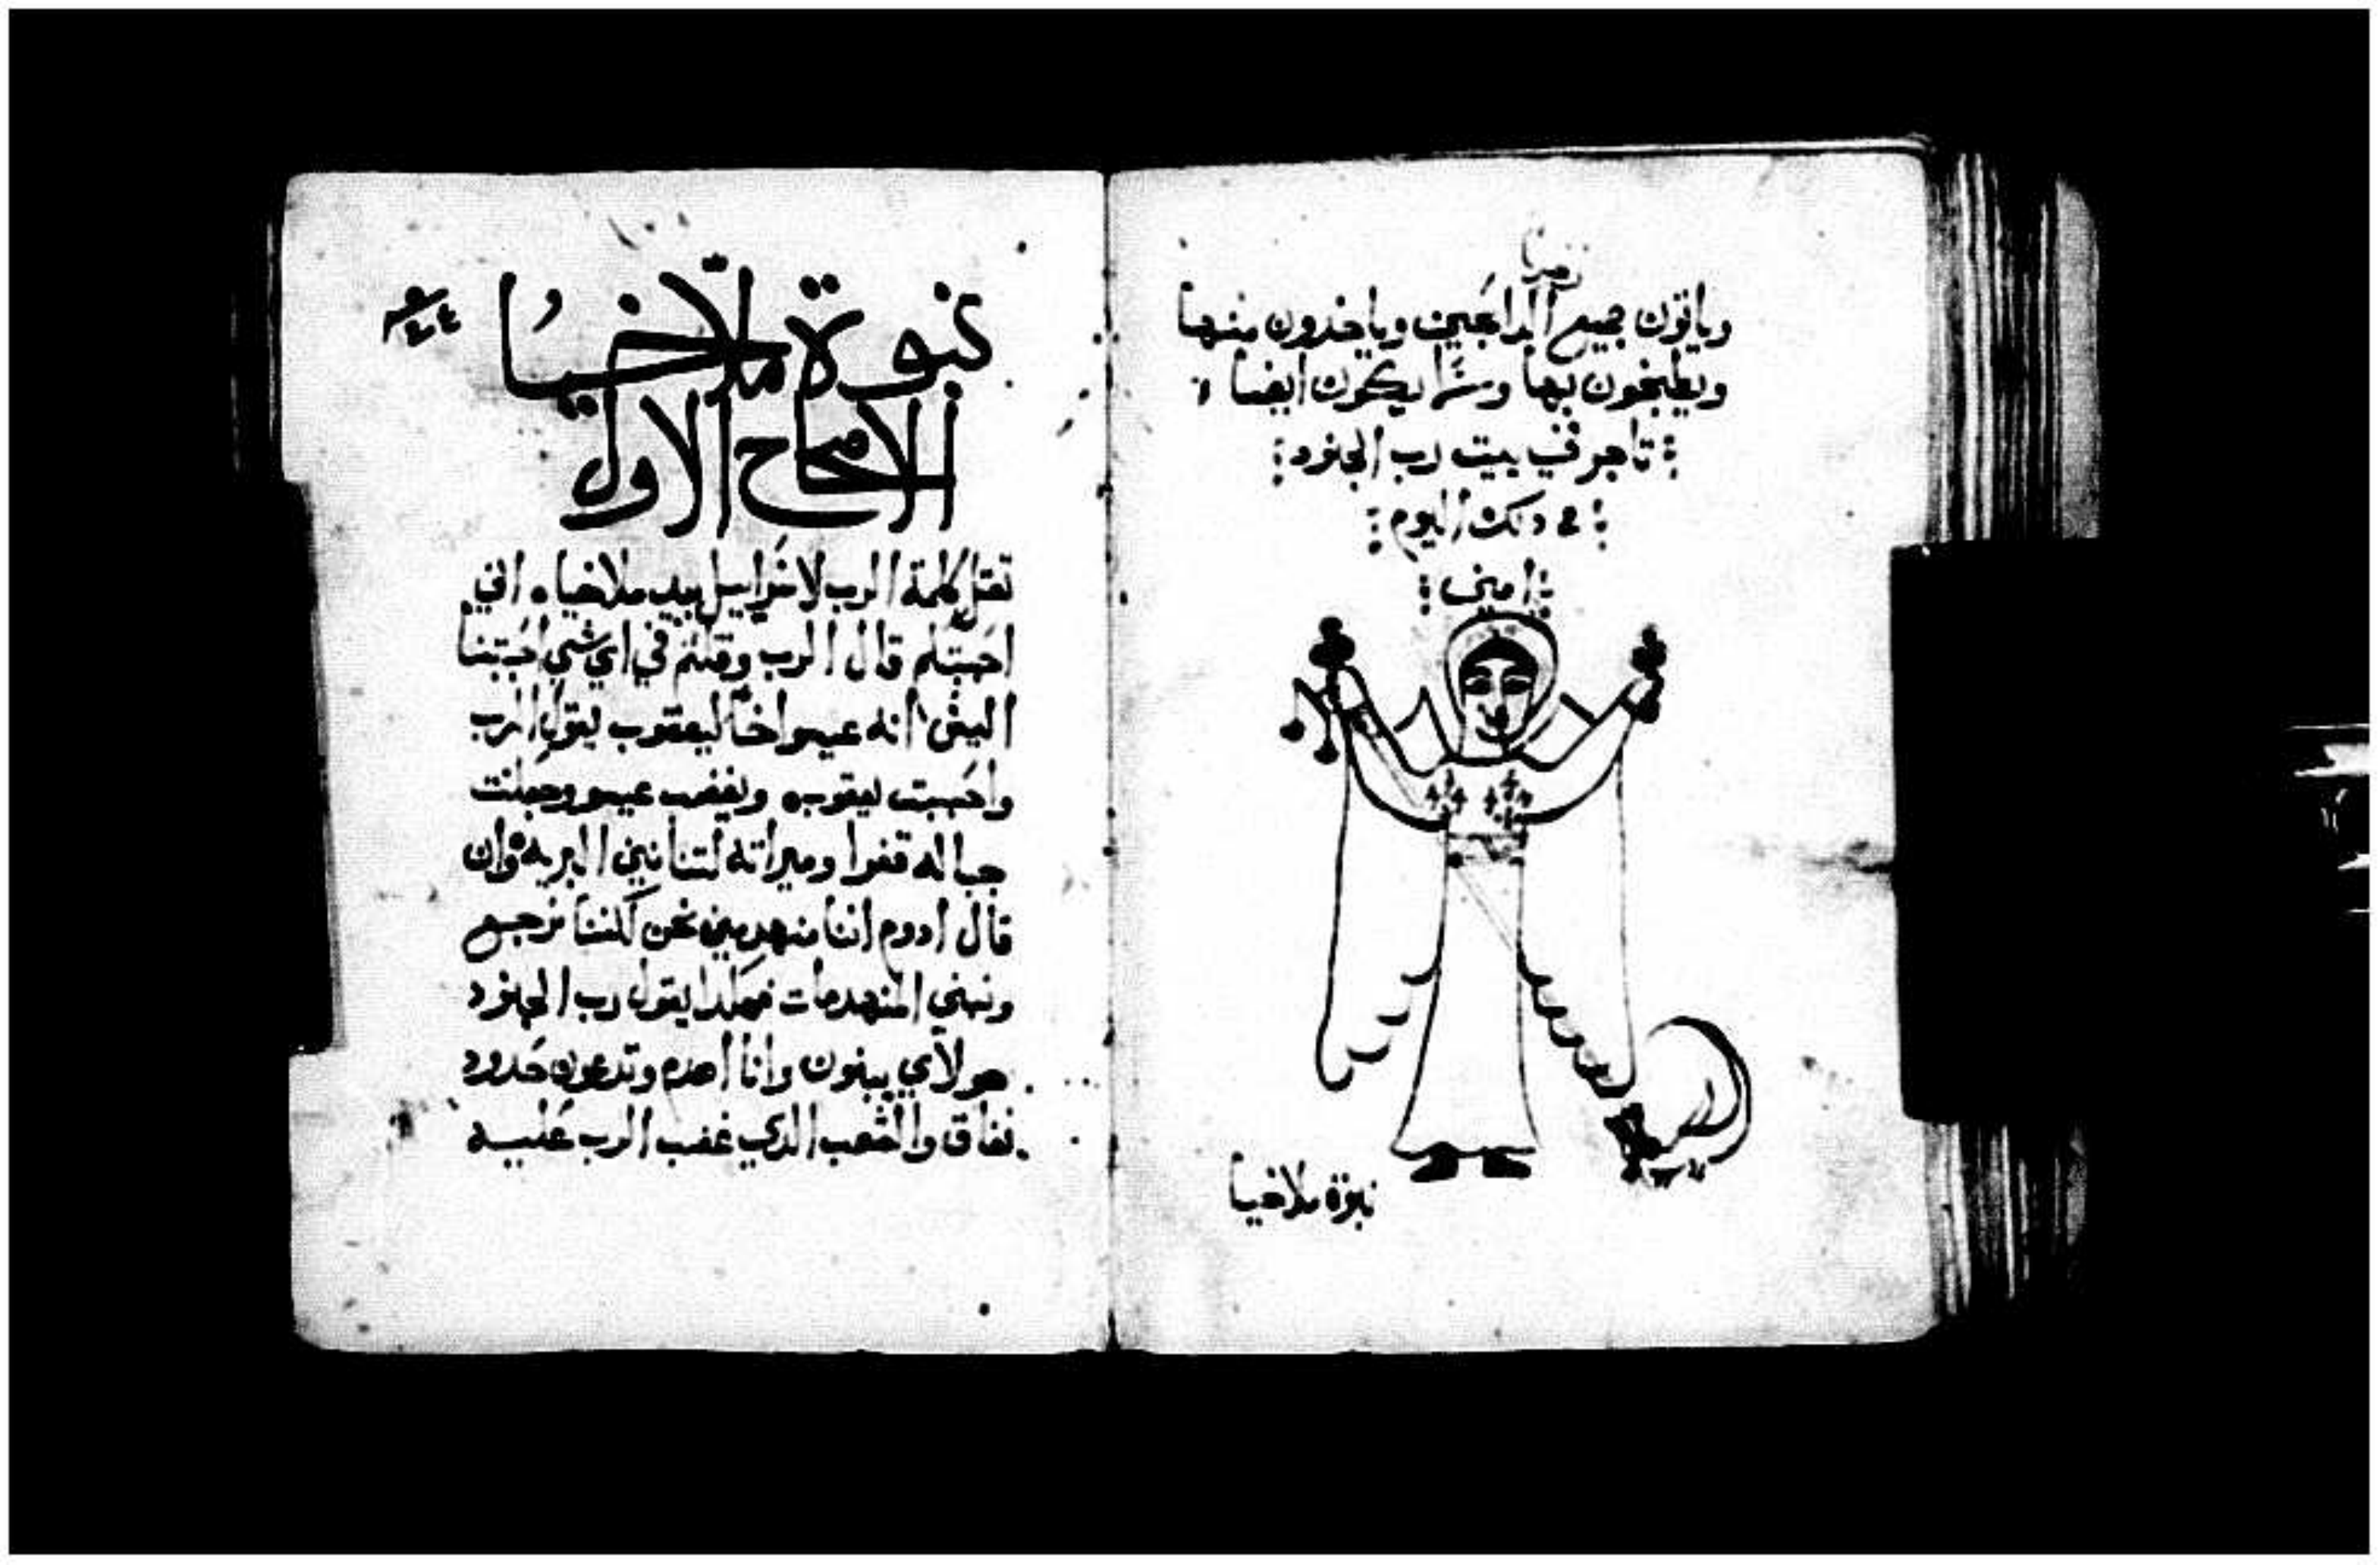 وياتون جميع الدابحين وياخدون منها
ويطبخون بها وشرا يكون ايضا
تاجر في بيت رب الجنود
في دلك اليوم
امين
نبوة ملاخيا
نبوة ملاخيا
الاصحاح الاول
تقل كلمة الرب لاسرايل بيد ملاخيا اني
احببتكم قال الرب وقلتم في اي شي احببتنا
اليس انه عيسو اخا ليعقوب يقول الرب
واحببت ليعقوب وبغضت عيسو وجعلت
جباله قفرا وميراته لتنانين البريه وان
قال ادوم اننا منهدمين نحن لكننا نرجع
ونبني المنهدمات فهكدا يقول رب الجنود
هولاي يبنون وانا اهدم وتدعون حدود
نفاق والشعب الدي غضب الرب عليه